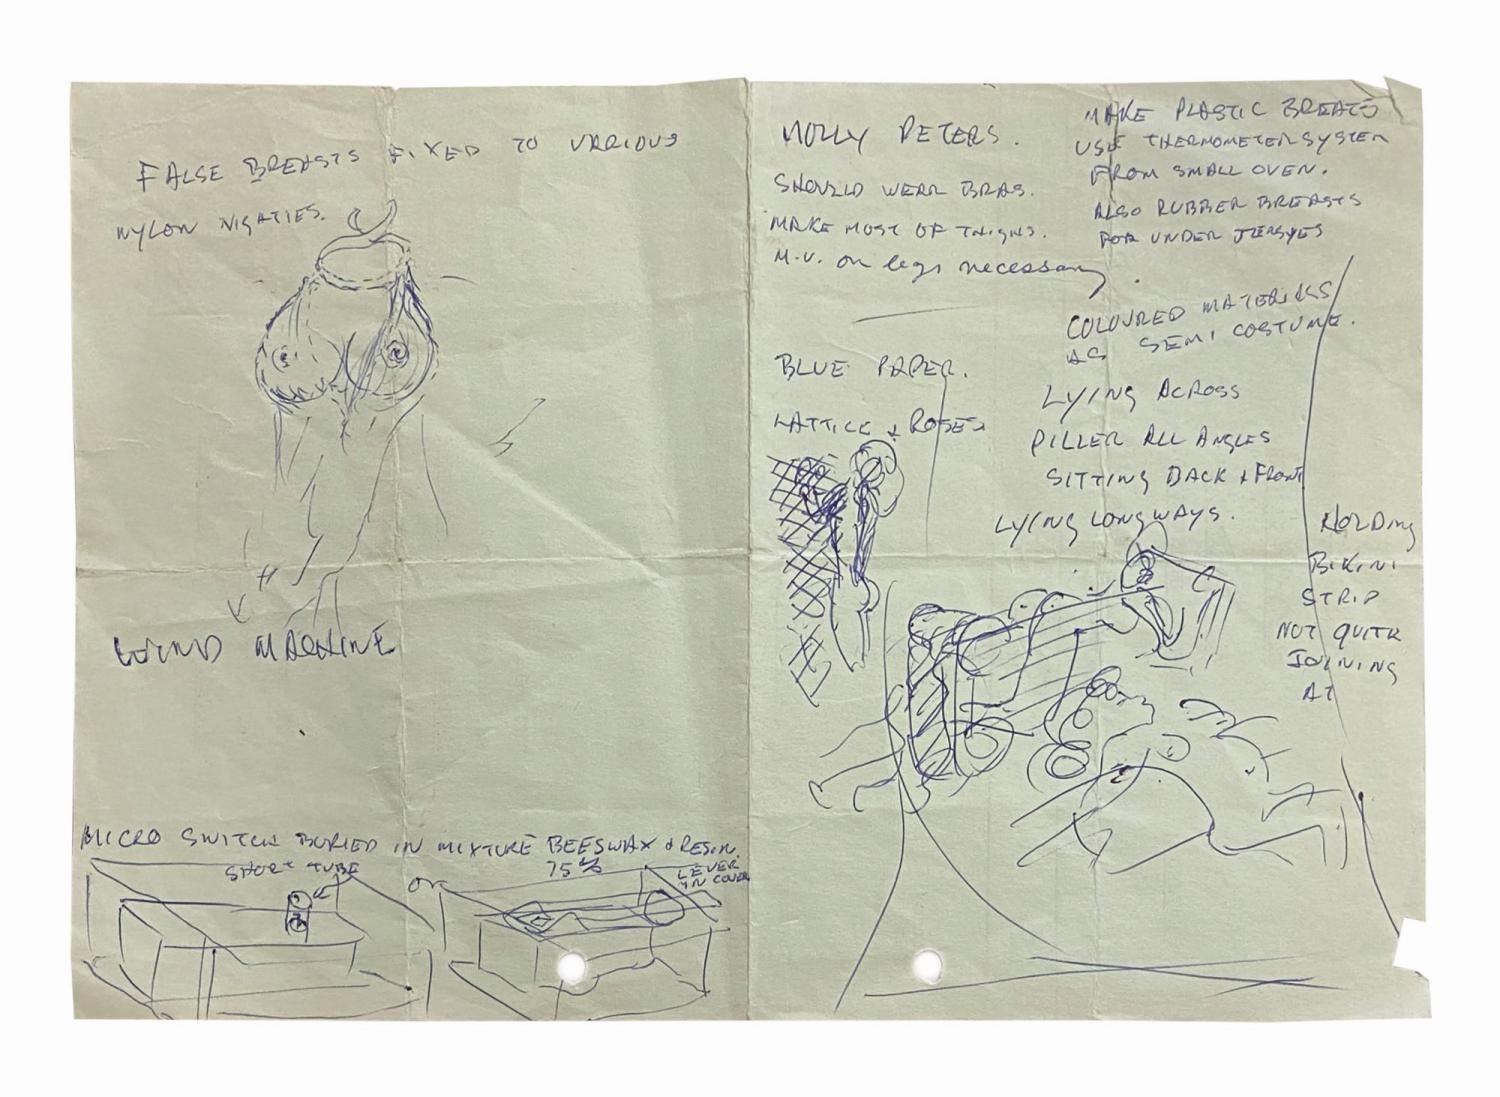 FALSE BREASTS FIXED TO VARIOUS
NYLON NIGHTIES.
WIND MACHINE
MICRO SWITCH BURIED IN MIXTURE BEESWAX & RESIN.
SHORT TUBE
75%
or
LEVER
IN COVER
MOLLY PETERS.
SHOULD WEAR BRAS.
MAKE MOST OF THIGHS.
M.U. on legs necessary
BLUE PAPER.
LATTICE & ROSES
MAKE PLASTIC BREATS
USE THERMOMETER SYSTEM
FROM SMALL OVEN.
ALSO RUBBER BREASTS
FOR UNDER JERSYES
COLOURED MATERIALS
AS SEMI COSTUME.
LYING ACROSS
PILLER ALL ANGLES
SITTING BACK & FRONT
LYING LONGWAYS.
HOLDING
BIKINI
STRIP
NOT QUITE
JOINING
AT